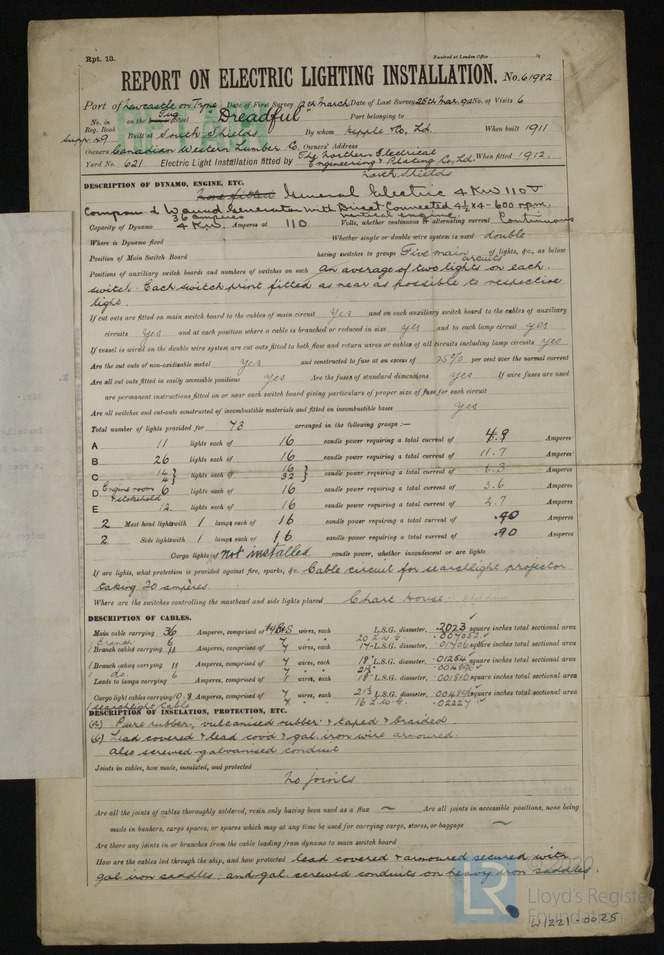 Rpt. 13.
Received at London Office 19
REPORT ON ELECTRIC LIGHTING INSTALLATION. No. 61982
Port of Newcastle on Tyne Date of First Survey 12th March Date of Last Survey 25th Mar. 1912 No. of Visits 6
No. in Reg. Book Supp 29 on the Tug Steel "Dreadful" Port belonging to
Built at South Shields By whom Hepple & Co. Ld When built 1911
Owners Canadian Western Lumber Co. Owners' Address
Yard No. 621 Electric Light Installation fitted by The Northern Electrical Engineering & Plating Co, Ld. When fitted 1912.
North Shields
DESCRIPTION OF DYNAMO, ENGINE, ETC.
General Electric 4 KW 110 V
Compound Wound Generator with Direct Connected 4½ x 4 - 600 rpm.
36 amperes vertical engine.
Capacity of Dynamo 4 KW. Amperes at 110 Volts, whether continuous or alternating current Continuous
Where is Dynamo fixed Whether single or double wire system is used double
Position of Main Switch Board having switches to groups Five main circuits of lights, &c., as below
Positions of auxiliary switch boards and numbers of switches on each an average of two lights on each
switch. Each switch point fitted as near as possible to respective
light.
If cut outs are fitted on main switch board to the cables of main circuit yes and on each auxiliary switch board to the cables of auxiliary
circuits yes and at each position where a cable is branched or reduced in size yes and to each lamp circuit yes
If vessel is wired on the double wire system are cut outs fitted to both flow and return wires or cables of all circuits including lamp circuits yes
Are the cut outs of non-oxidizable metal yes and constructed to fuse at an excess of 25% per cent over the normal current
Are all cut outs fitted in easily accessible positions yes Are the fuses of standard dimensions yes If wire fuses are used
are permanent instructions fitted on or near each switch board giving particulars of proper size of fuse for each circuit
Are all switches and cut-outs constructed of incombustible materials and fitted on incombustible bases yes
Total number of lights provided for 73 arranged in the following groups :—
A 11 lights each of 16 candle power requiring a total current of 4.9 Amperes
B 26 lights each of 16 candle power requiring a total current of 11.7 Amperes
C 14 4 lights each of 16 32 candle power requiring a total current of Amperes
D Engine room & stokehold 6 lights each of 16 candle power requiring a total current of Amperes
E 12 lights each of 16 candle power requiring a total current of Amperes
2 Mast head lights with 1 lamps each of 16 candle power requiring a total current of .90 Amperes
2 Side lights with 1 lamps each of 16 candle power requiring a total current of .90 Amperes
Cargo lights of not installed candle power, whether incandescent or arc lights
If arc lights, what protection is provided against fire, sparks, &c. Cable circuit for searchlight projector
taking 20 ampères.
Where are the switches controlling the masthead and side lights placed Chart House
DESCRIPTION OF CABLES.
Main cable carrying 36 Amperes, comprised of wires, each L.S.G. diameter, .2023 square inches total sectional area
Branch 6 7 20 L.W.G .007052
Branch cables carrying 11 Amperes, comprised of 7 wires, each 17 L.S.G. diameter, square inches total sectional area
Branch cables carrying 11 Amperes, comprised of 7 wires, each 18 L.S.G. diameter, .01254 square inches total sectional area
do. 6 7 21½ .004896
Leads to lamps carrying Amperes, comprised of wires, each 18 L.S.G. diameter, .001810 square inches total sectional area
Cargo light cables carrying Amperes, comprised of 7 wires, each 21½ L.S.G. diameter, .004896 square inches total sectional area
Searchlight Cable 7 16 L.W.G. .02227
DESCRIPTION OF INSULATION, PROTECTION, ETC.
(a) Pure rubber, vulcanised rubber & taped & braided
Lead covered & lead cov'd & gal. iron wire armoured
also screwed galvanised conduit
Joints in cables, how made, insulated, and protected
No joints
Are all the joints of cables thoroughly soldered, resin only having been used as a flux ~ Are all joints in accessible positions, none being
made in bunkers, cargo spaces, or spaces which may at any time be used for carrying cargo, stores, or baggage ~
Are there any joints in or branches from the cable leading from dynamo to main switch board
How are the cables led through the ship, and how protected lead covered & armoured secured with
gal iron saddles; and gal screwed conduits on heavy iron saddles.
© 2020
LR Lloyd's Register
Foundation
W1221-0025